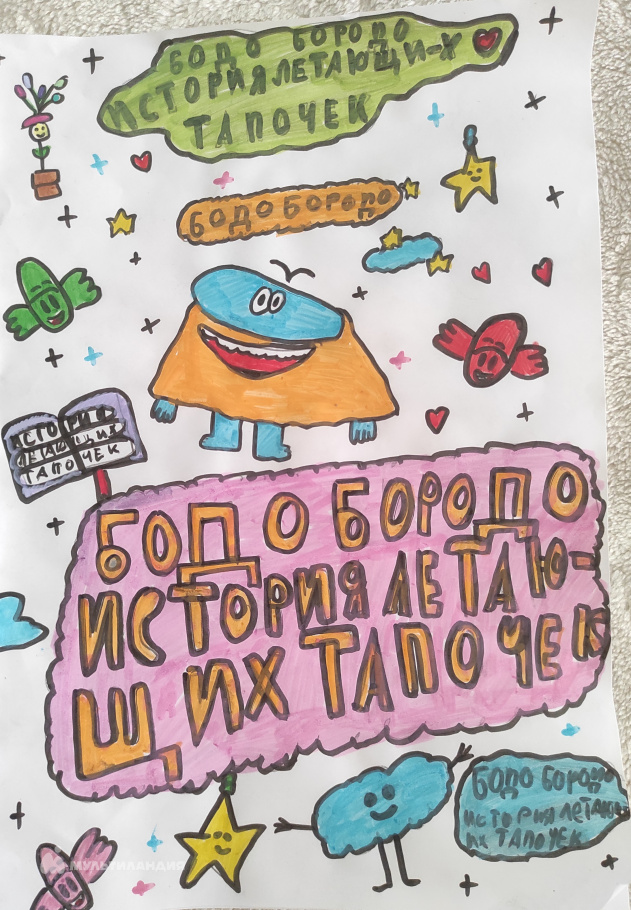 БОДО БОРОДО
ИСТОРИЯ ЛЕТАЮЩИ-Х
ТАПОЧЕК
БОДО БОРОДО
ИСТОРИЯ
ЛЕТАЮЩИХ
ТАПОЧЕК
БОДО БОРОДО
ИСТОРИЯ ЛЕТАЮ-
ЩИХ ТАПОЧЕК
БОДО БОРОДО
ИСТОРИЯ ЛЕТАЮЩ
ИХ ТАПОЧЕК
МУЛЬТИЛАНДИЯ